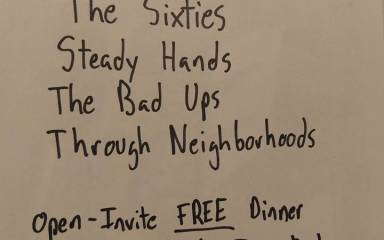 The Sixties
Steady Hands
The Bad Ups
Through Neighborhoods
Open-Invite FREE Dinner